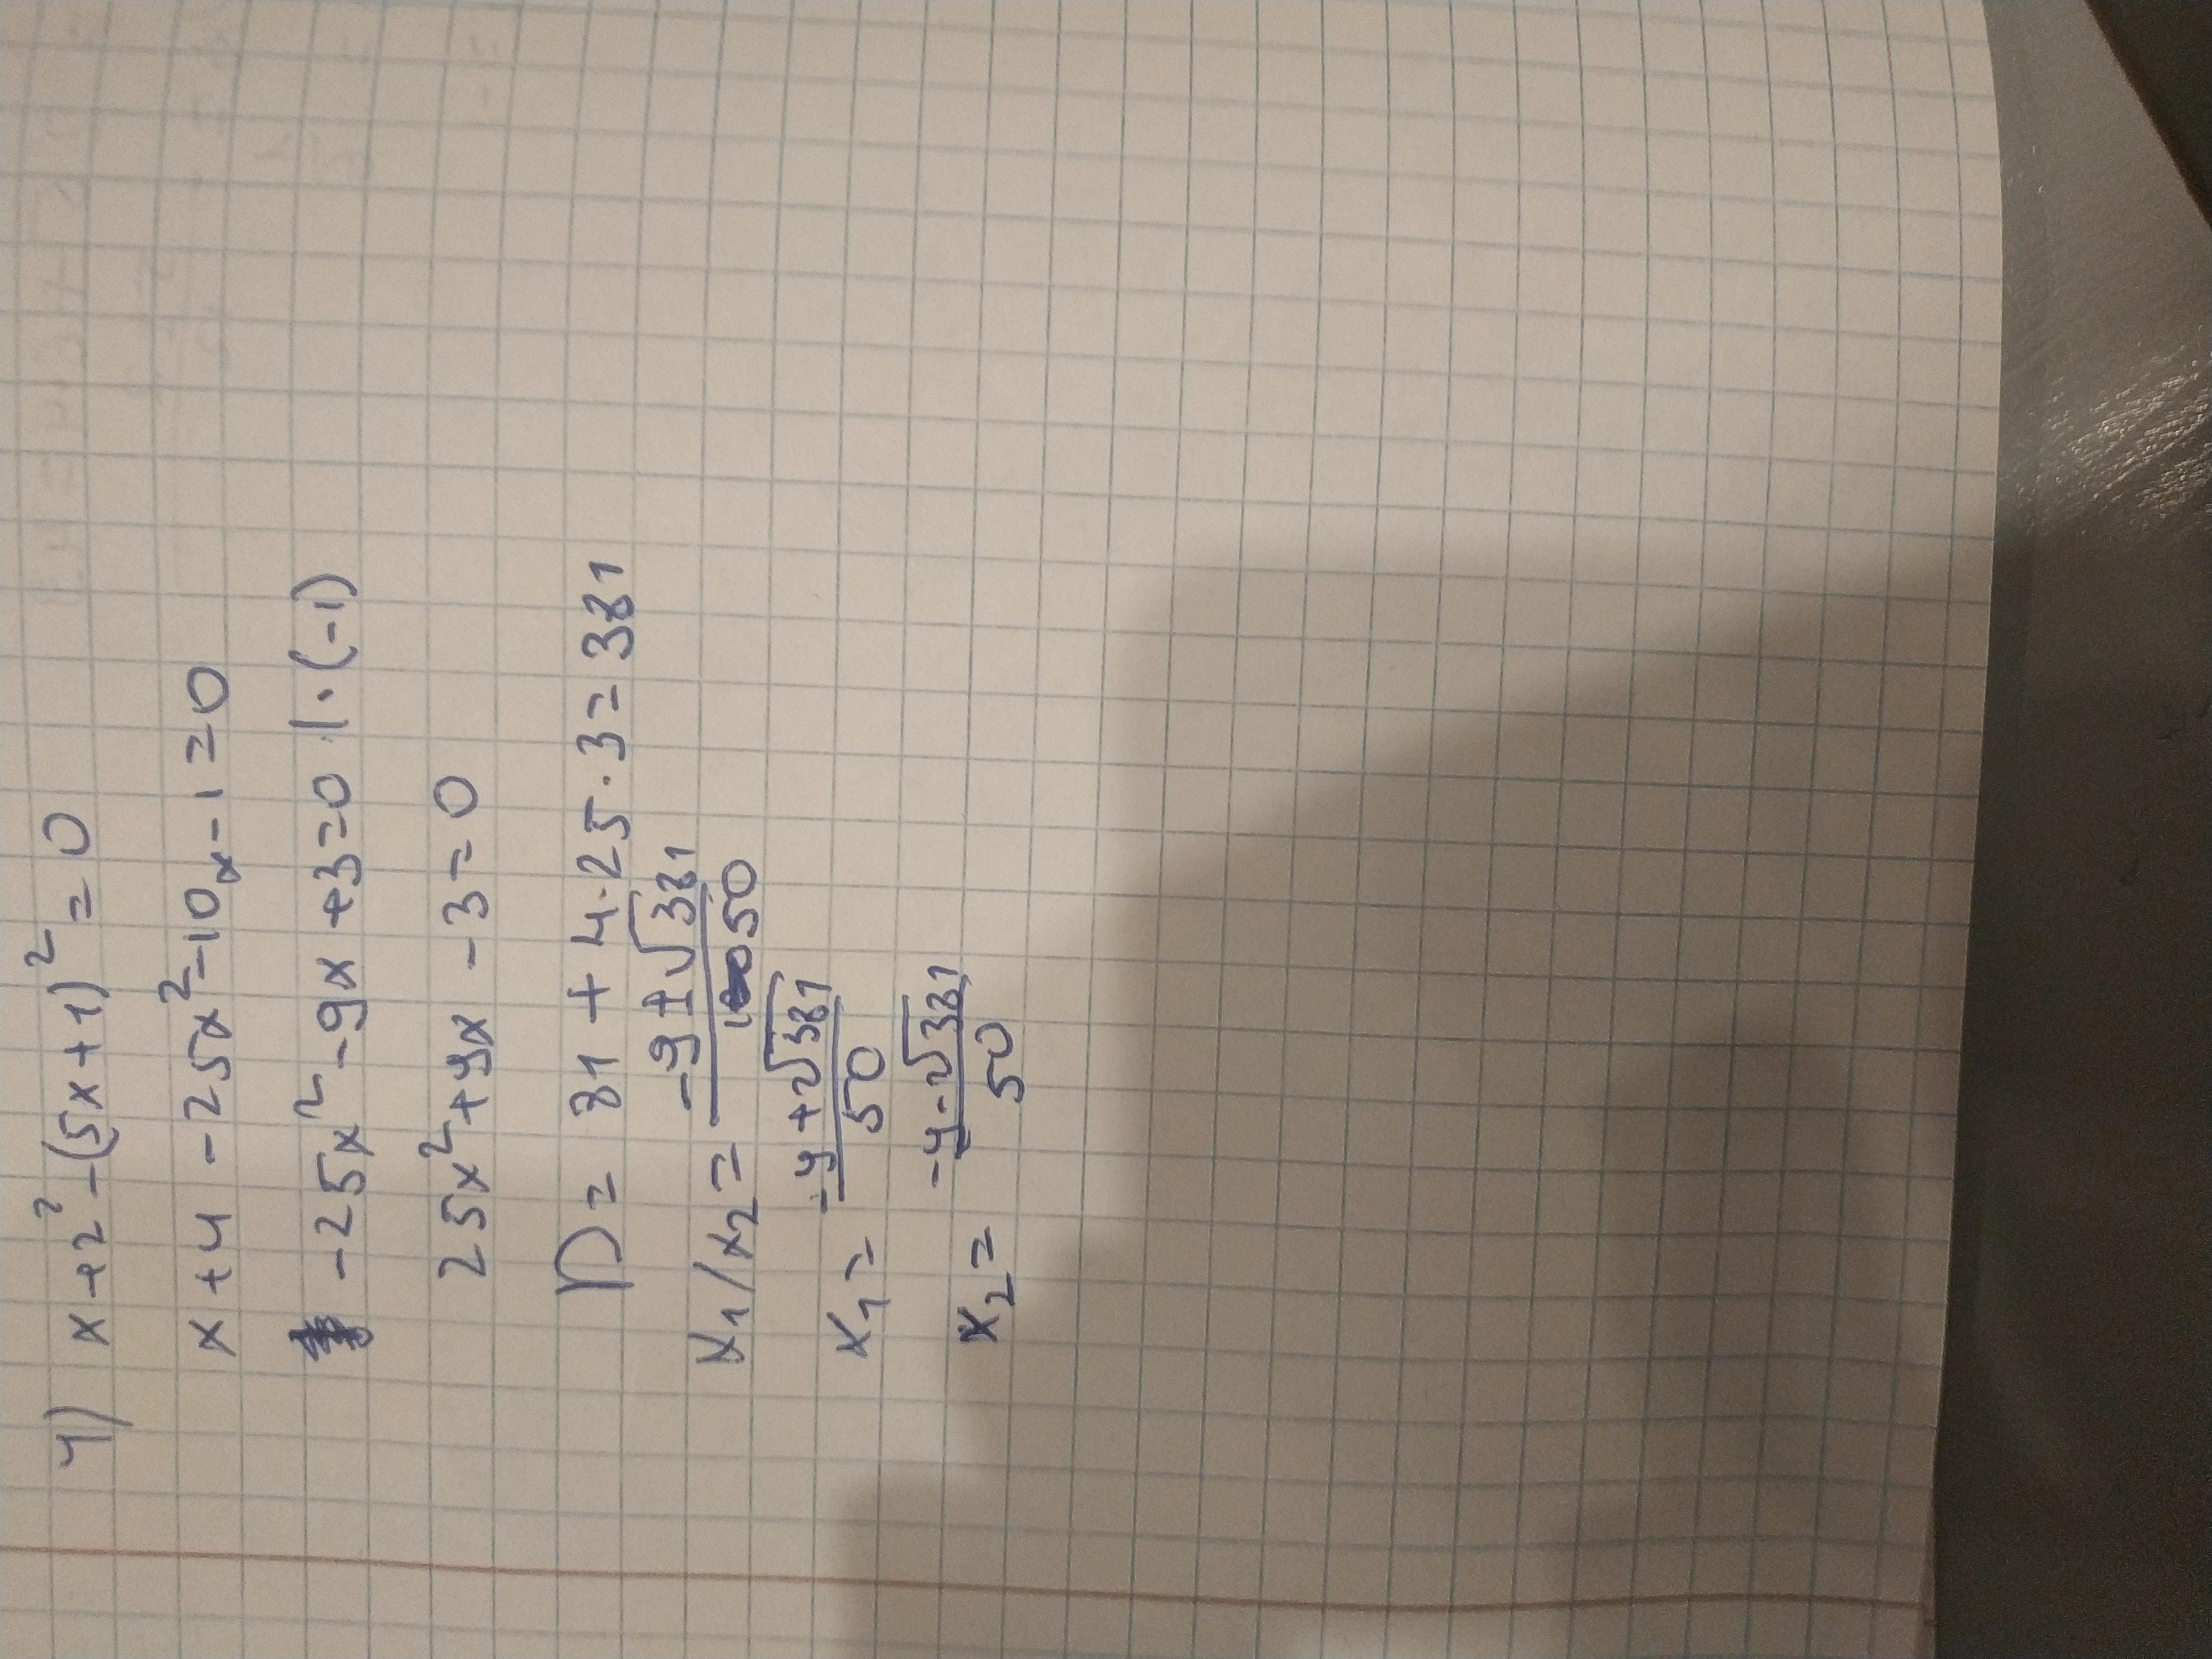 4) x+2²-(5x+1)²=0
x+4-25x²-10x-1=0
-25x²-9x+3=0 |·(-1)
25x²+9x-3=0
D= 81+4·25·3=381
x₁/x₂= -9±√381 / 50
x₁= -9+√381 / 50
x₂= -9-√381 / 50